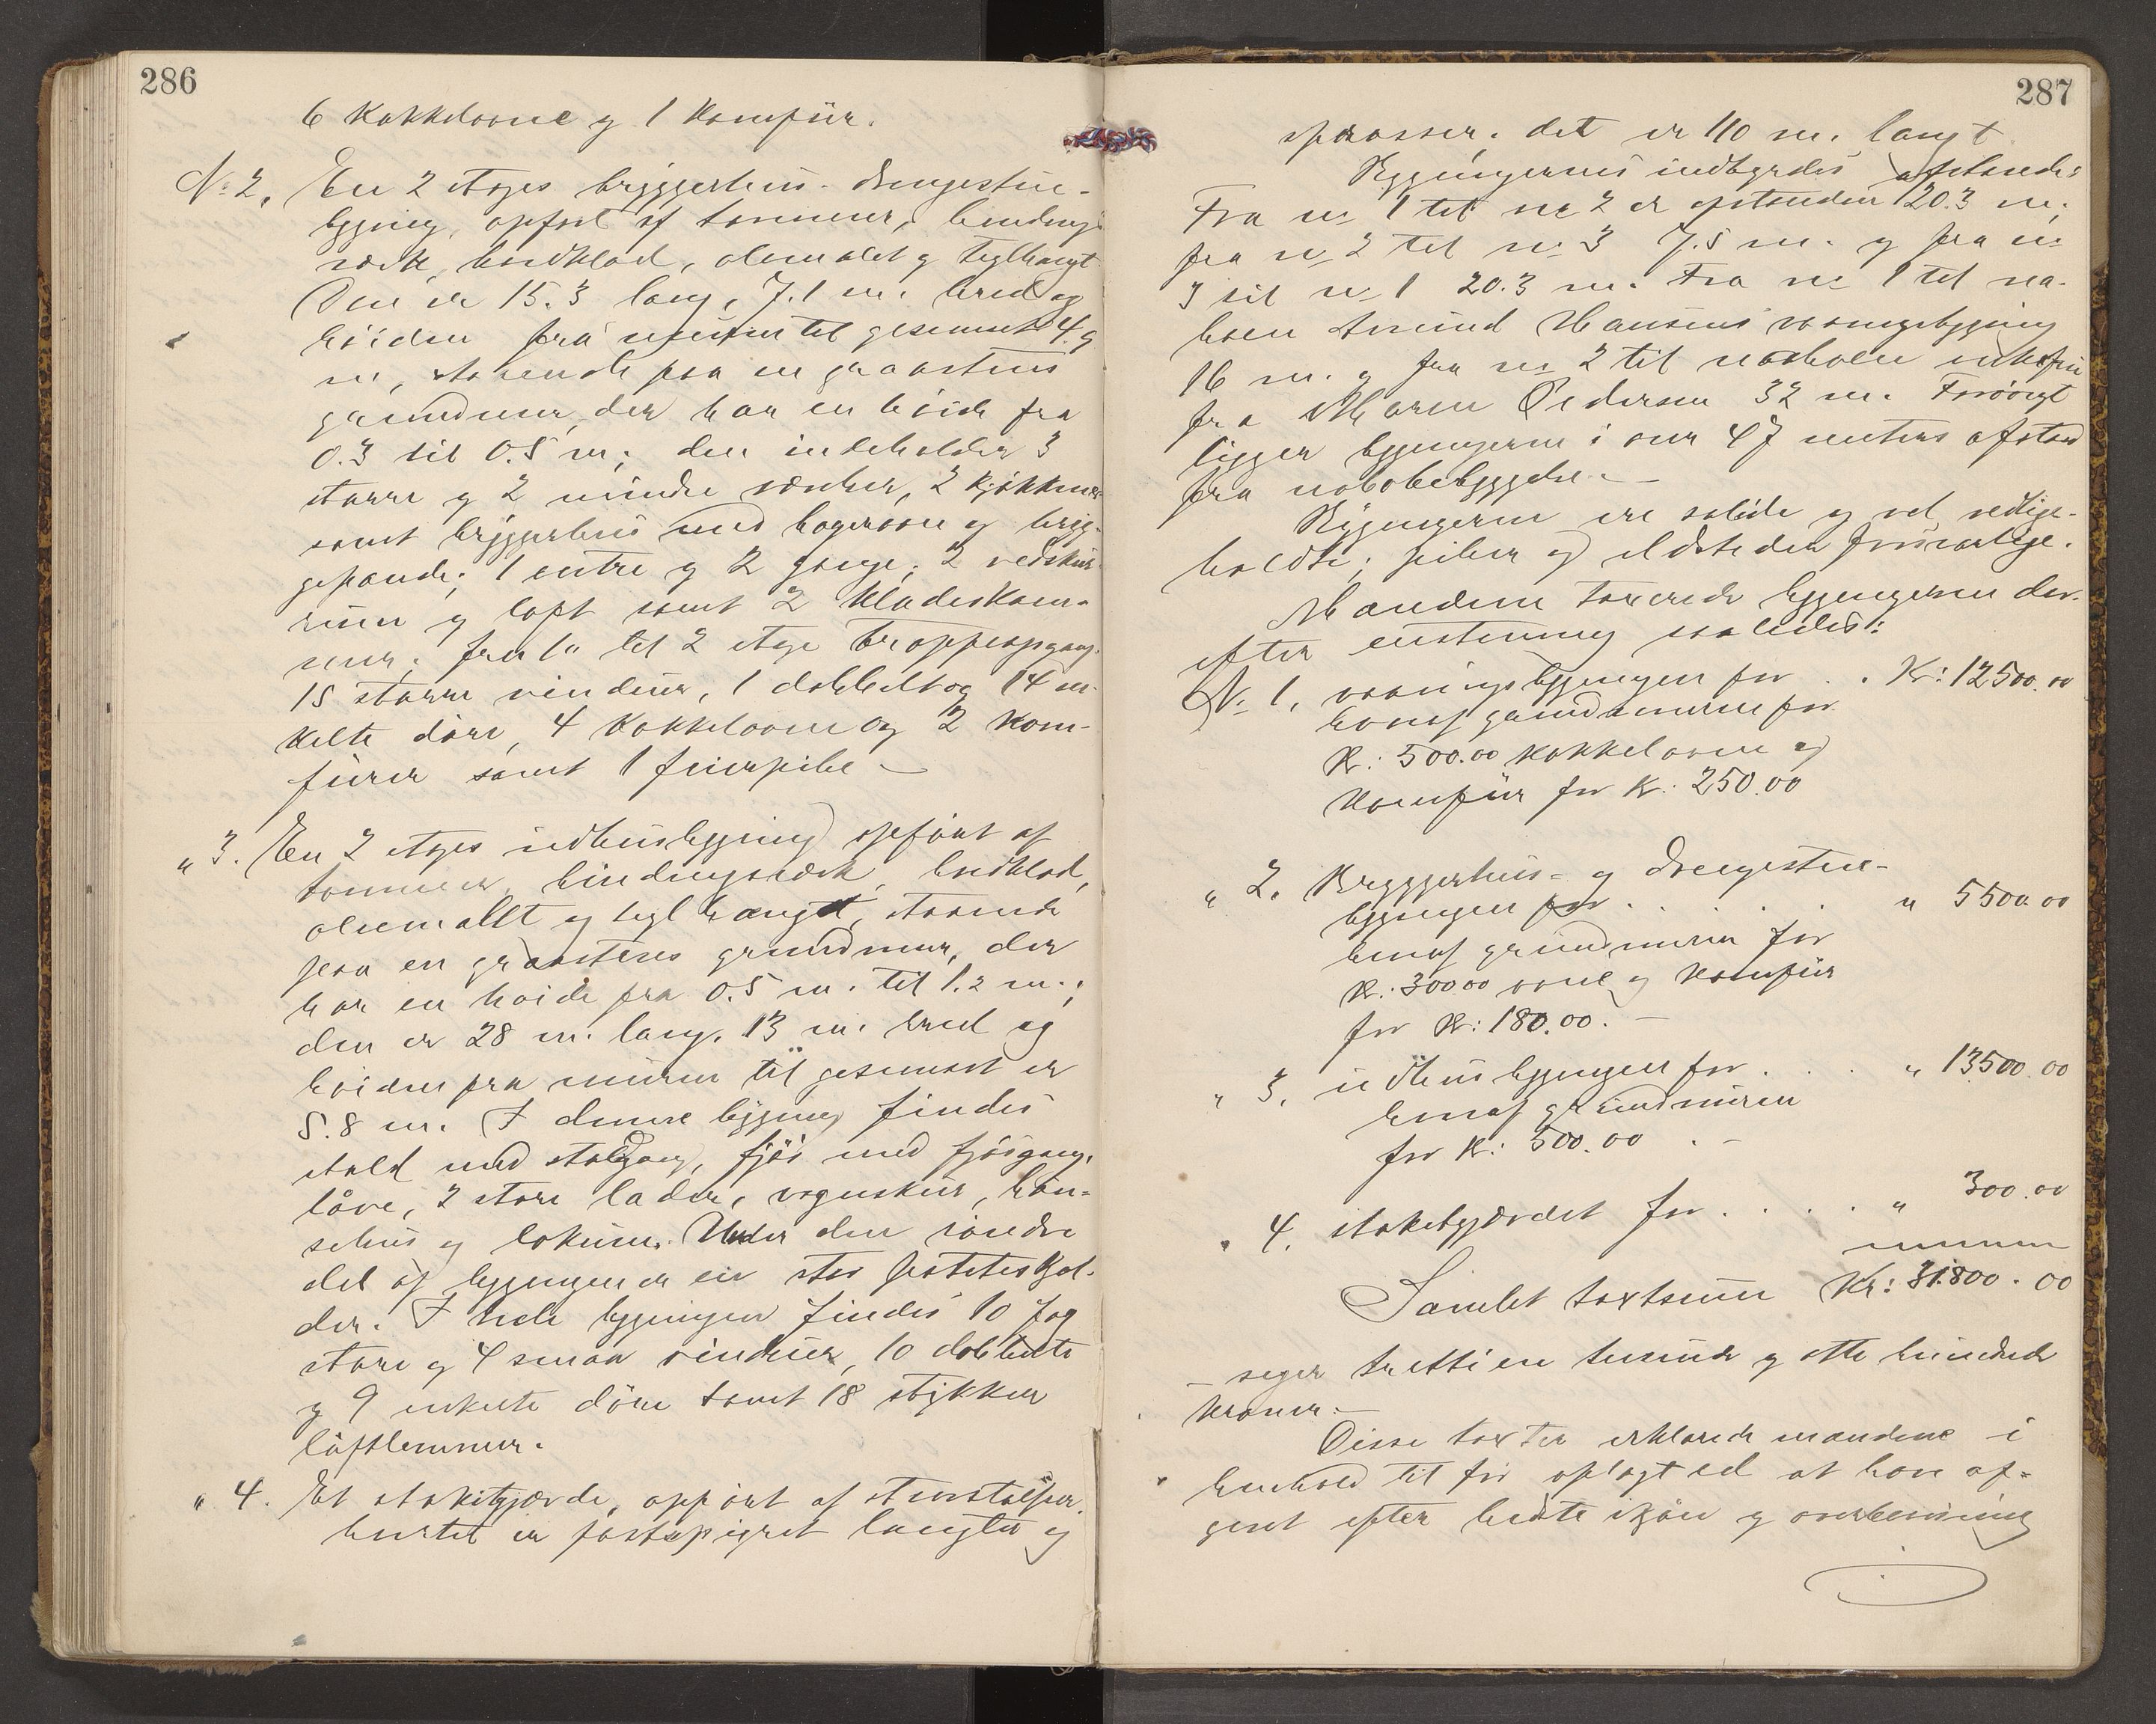 286
6 Kakkelovne og 1 Komfür.
No 2, En 2 etages bryggerhus- drengestue-
bygning, opført af tømmer, bindings
værk, bordklæd, oliemalet og teglhængt.
Den er 15.3 lang, 7.1 m. bred og
höiden fra muren til gesimset 4.9
m, staaende paa en graastens
grundmur, der har en höide fra
0.3 til 0.5 m; den indeholder 3
større og 2 mindre værelser, 2 kjøkkener
samt bryggerhus med bagerovn og bryg-
gepande; 1 entre og 2 gange; 2 vedskur
rum og loft samt 2 klædeskam-
mer; fra 1ste til 2 etage trappeopgang.
15 større vinduer, 1 dobbelt og 14 en-
kelte döre, 4 Kakkelovne og 2 Kom-
fürer samt 1 feierpibe —
" 3. En 2 etages udhusbygning opført af
tømmer, bindingsværk, bordklæd,
oliemalet og teglhængt, staaende
paa en graastens grundmur, der
har en høide fra 0.5 m. til 1.2 m.;
den er 28 m. lang, 13 m. bred og
höiden fra muren til gesimset er
5.8 m. I denne bygning findes
stald med staldgang, fjös med fjösgang,
låve, 2 store lader, vognskur, høn-
sehus og lokum. Under den søndre
del af bygningen er en stor potetkjel-
der. I hele bygningen findes 10 fag
store og 4 smaa vinduer, 10 dobbelte
og 9 enkelte döre samt 18 stykker
löftlemmer.
" 4. Et stakitgjærde, opført af
langtre og
287
sprosser; det er 110 m. langt
Bygningernes indbyrdes afstande:
Fra no 1 til no 2 er afstanden 20.3 m;
fra no 2 til no 3 7.5 m. og fra no
3 til no 1 20.3 m. Fra no 1 til na-
boen Amund Hansens vaaningsbygning
16 m. og fra no 2 til naboen enkefru
fra Maren Pedersen 32 m. Forövrigt
ligger bygningerne i over 47 meters afstand
fra nabobebyggelse. —
Bygningerne ere solide og vel vedlige-
holdte; piber og ildsteder forsvarlige.
Mændene taxerede bygningerne der-
efter enstemmig saaledes:
No 1, vaaningsbygningen for . . Kr: 12500.00
hvoraf grundmuren for
Kr: 500.00 Kakkelovne og
Komfür for Kr: 250.00
" 2. Bryggerhus- og drengestue-
bygningen for . . . . . " 5500.00
hvoraf grundmuren for
Kr: 300.00 ovne og Komfür
for Kr: 180.00. —
" 3, udhusbygningen for . . . " 13500.00
hvoraf grundmuren
for Kr: 500.00 . —
" 4. stakitgjærdet for . . . . " 300.00
Samlet taxtsum Kr: 31.800.00
— siger tretti en tusinde og otte hundrede
Kroner. —
Disse taxter erklærede mændene i
henhold til før aflagt ed at have af-
givet efter bedste skjøn og overbevisning